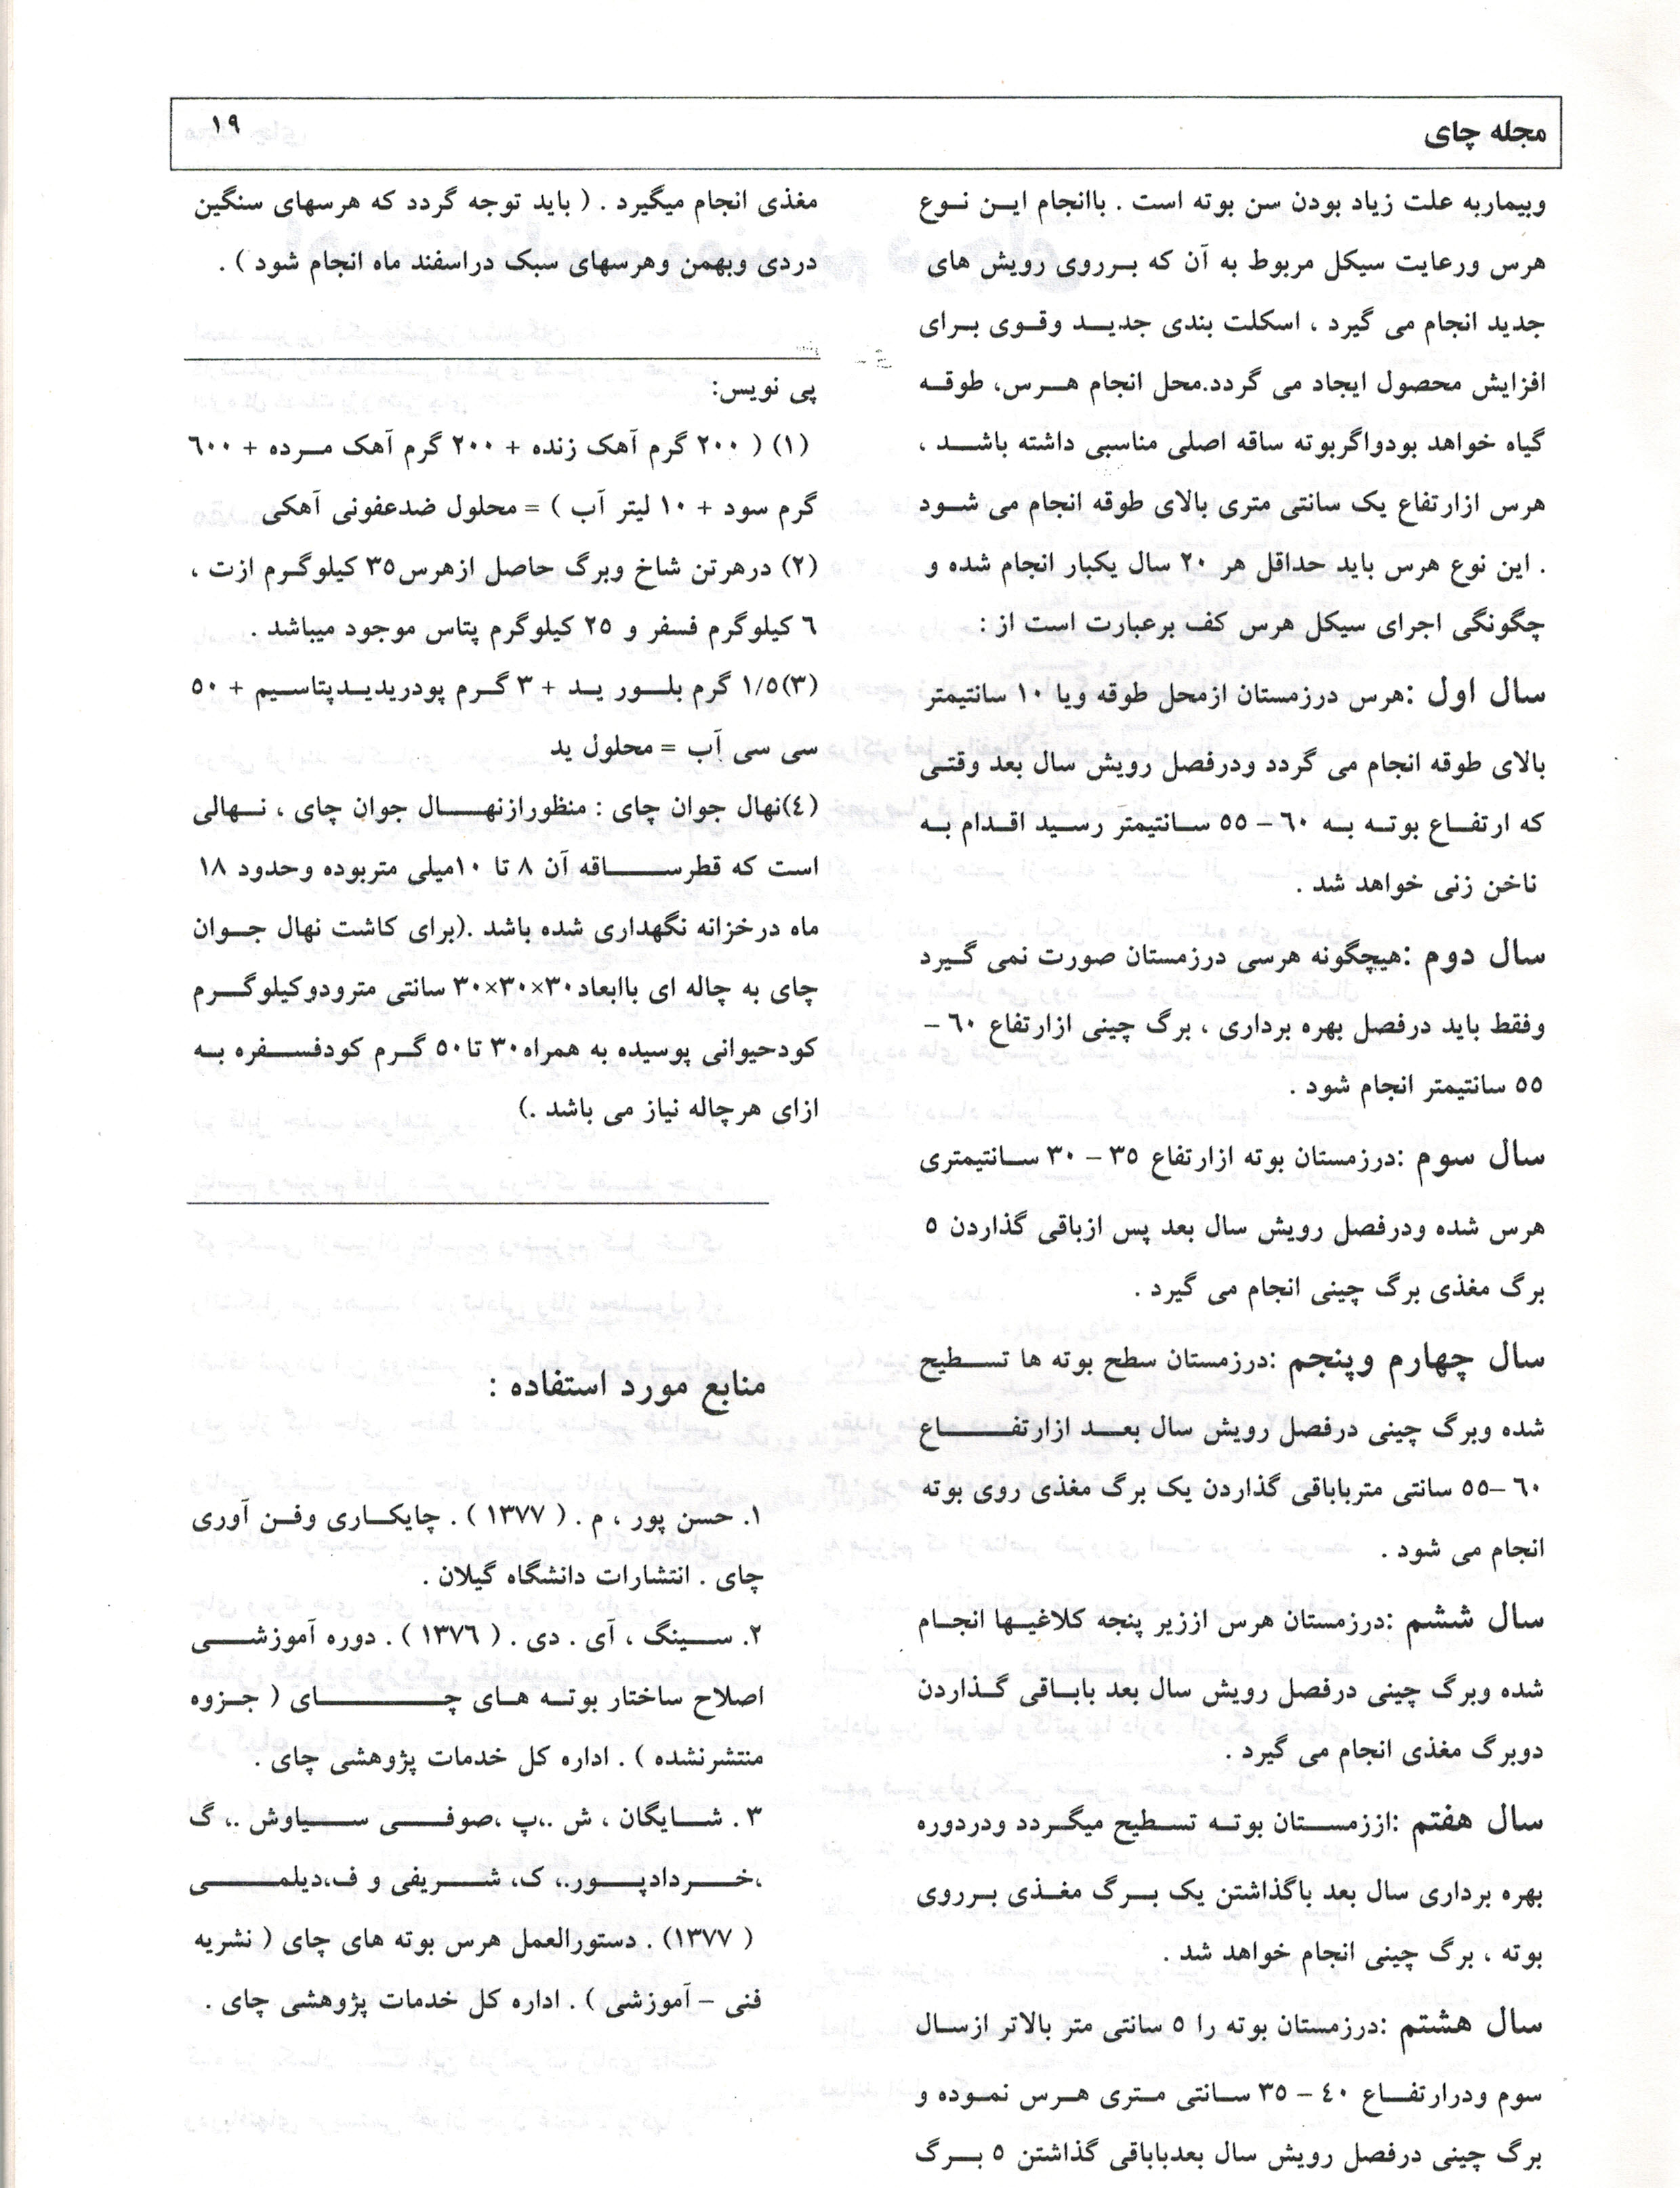 مجله چای
١٩
وبیماربه علت زیاد بودن سن بوته است . باانجام ایـن نـوع
هرس ورعایت سیکل مربوط به آن که بـرروی رویش های
جدید انجام می گیرد ، اسکلت بندی جدیـد وقـوی بـرای
افزایش محصول ایجاد می گردد.محل انجام هـرس، طوقـه
گیاه خواهد بودواگربوته ساقه اصلی مناسبی داشته باشـد ،
هرس ازارتفاع یک سانتی متری بالای طوقه انجام می شـود
. این نوع هرس باید حداقل هر ٢٠ سال یکبار انجام شده و
چگونگی اجرای سیکل هرس کف برعبارت است از :
سال اول :هرس درزمستان ازمحل طوقه ویا ١٠ سانتیمتر
بالای طوقه انجام می گردد ودرفصل رویش سال بعد وقتـی
که ارتفـاع بوتـه بـه ٦٠ – ٥٥ سـانتیمتر رسید اقـدام بـه
ناخن زنی خواهد شد .
سال دوم :هیچگونه هرسی درزمستان صورت نمی گـیرد
وفقط باید درفصل بهره برداری ، برگ چینی ازارتفاع ٦٠ –
٥٥ سانتیمتر انجام شود .
سال سوم :درزمستان بوته ازارتفاع ٣٥ – ٣٠ سـانتیمتری
هرس شده ودرفصل رویش سال بعد پس ازباقی گذاردن ٥
برگ مغذی برگ چینی انجام می گیرد .
سال چهارم وپنجم :درزمستان سطح بوته ها تسـطیح
شده وبرگ چینی درفصل رویش سال بعـد ازارتفـاع
٦٠ –٥٥ سانتی مترباباقی گذاردن یک برگ مغذی روی بوته
انجام می شود .
سال ششم :درزمستان هرس اززیر پنجه کلاغیـها انجـام
شده وبرگ چینی درفصل رویش سال بعد بابـاقی گـذاردن
دوبرگ مغذی انجام می گیرد .
سال هفتم :اززمسـتان بوتـه تسـطیح میگـردد ودردوره
بهره برداری سال بعد باگذاشتن یک بـرگ مغـذی بـرروی
بوته ، برگ چینی انجام خواهد شد .
سال هشتم :درزمستان بوته را ٥ سانتی متر بالاتر ازسـال
سوم ودرارتفـاع ٤٠ – ٣٥ سـانتی مـتری هـرس نمـوده و
برگ چینی درفصل رویش سال بعدباباقی گذاشتن ٥ بـرگ
مغذی انجام میگیرد . ( باید توجه گردد که هرسهای سنگین
دردی وبهمن وهرسهای سبک دراسفند ماه انجام شود ) .
پی نویس:
(١) ( ٢٠٠ گرم آهک زنده + ٢٠٠ گرم آهک مـرده + ٦٠٠
گرم سود + ١٠ لیتر آب ) = محلول ضدعفونی آهکی
(٢) درهرتن شاخ وبرگ حاصل ازهرس٣٥ کیلوگـرم ازت ،
٦ کیلوگرم فسفر و ٢٥ کیلوگرم پتاس موجود میباشد .
(٣)١/٥ گرم بلـور یـد + ٣ گـرم پودریدیـدپتاسـیم + ٥٠
سی سی آب = محلول ید
(٤)نهال جوان چای : منظورازنهـال جوان چای ، نـهالی
است که قطرسـاقه آن ٨ تا ١٠میلی متربوده وحدود ١٨
ماه درخزانه نگهداری شده باشد .(برای کاشت نهال جـوان
چای به چاله ای باابعاد٣٠×٣٠×٣٠ سانتی مترودوکیلوگـرم
کودحیوانی پوسیده به همراه٣٠ تا٥٠ گـرم کودفسـفره بـه
ازای هرچاله نیاز می باشد .)
منابع مورد استفاده :
١. حسن پور ، م . ( ١٣٧٧ ) . چایکـاری وفـن آوری
چای . انتشارات دانشگاه گیلان .
٢. سـینگ ، آی . دی . ( ١٣٧٦ ) . دوره آموزشـی
اصلاح ساختار بوتـه هـای چـای ( جـزوه
منتشرنشده ) . اداره کل خدمات پژوهشی چای .
٣ . شـایگان ، ش .،پ ،صوفـی سـیاوش .، گ
،خـردادپـور.، ک، شـریفی و ف،دیلمـی
( ١٣٧٧) . دستورالعمل هرس بوته های چای ( نشریه
فنی – آموزشی ) . اداره کل خدمات پژوهشی چای .